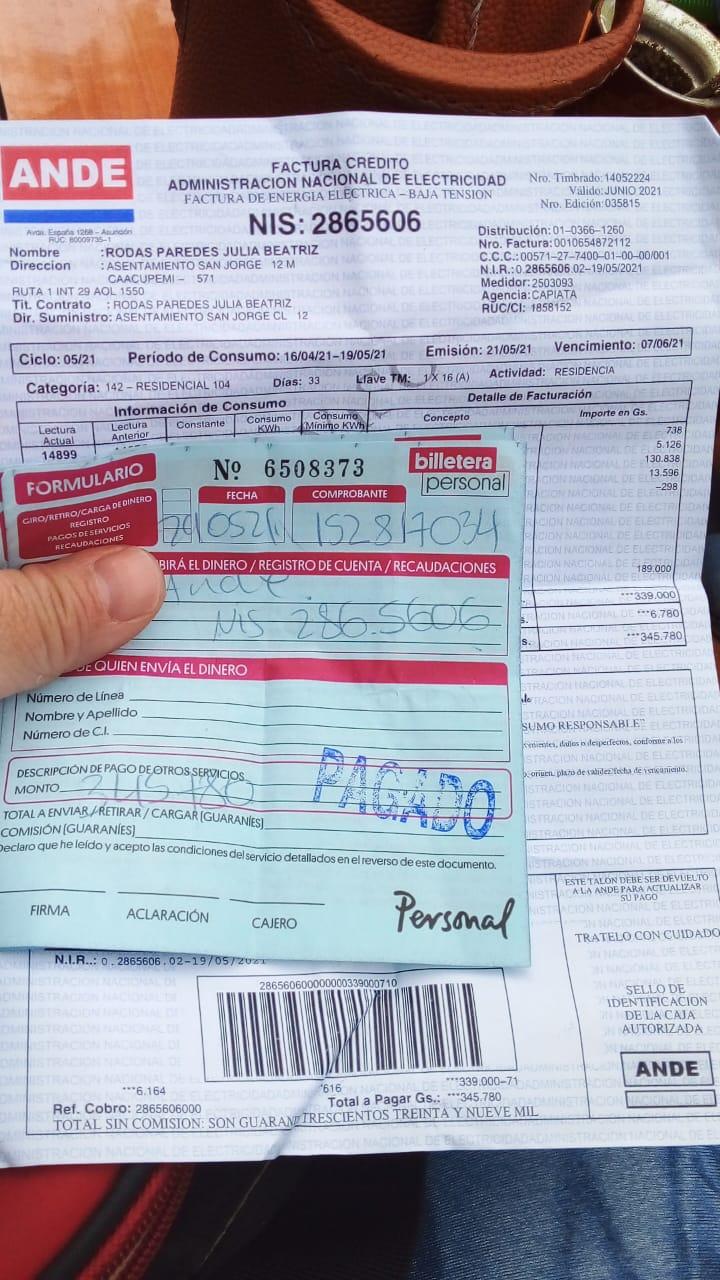 ANDE
Avda. España 1268 – Asunción
RUC: 80009735–1
FACTURA CREDITO
ADMINISTRACION NACIONAL DE ELECTRICIDAD
FACTURA DE ENERGIA ELECTRICA – BAJA TENSION
NIS: 2865606
Nro. Timbrado: 14052224
Válido: JUNIO 2021
Nro. Edición: 035815
Nombre :RODAS PAREDES JULIA BEATRIZ
Direccion :ASENTAMIENTO SAN JORGE 12 M
CAACUPEMI – 571
RUTA 1 INT 29 AOL 1550
Tit. Contrato :RODAS PAREDES JULIA BEATRIZ
Dir. Suministro: ASENTAMIENTO SAN JORGE CL 12
Distribución: 01–0366–1260
Nro. Factura: 0010654872112
C.C.C.: 00571–27–7400–01–00–00/001
N.I.R.: 0.2865606.02–19/05/2021
Medidor: 2503093
Agencia: CAPIATA
RUC/CI: 1858152
Ciclo: 05/21 Período de Consumo: 16/04/21–19/05/21 Emisión: 21/05/21 Vencimiento: 07/06/21
Categoría: 142 – RESIDENCIAL 104 Días: 33 Llave TM: 1 X 16 (A) Actividad: RESIDENCIA
Información de Consumo
Detalle de Facturación
Lectura Actual Lectura Anterior Constante Consumo KWh Consumo Mínimo KWh
Concepto Importe en Gs.
14899
738
5.126
130.838
13.596
–298
189.000
***339.000
s. ***6.780
s. ***345.780
FORMULARIO
GIRO/RETIRO/CARGA DE DINERO
REGISTRO
PAGOS DE SERVICIOS
RECAUDACIONES
Nº 6508373
billetera
personal
FECHA COMPROBANTE
210521 152817034
BIRÁ EL DINERO / REGISTRO DE CUENTA / RECAUDACIONES
Ande
NIS 286.5606
DE QUIEN ENVÍA EL DINERO
Número de Línea
Nombre y Apellido
Número de C.I.
DESCRIPCIÓN DE PAGO DE OTROS SERVICIOS
MONTO 345780
PAGADO
TOTAL A ENVIAR / RETIRAR / CARGAR (GUARANÍES)
COMISIÓN (GUARANÍES)
Declaro que he leído y acepto las condiciones del servicio detallados en el reverso de este documento.
FIRMA ACLARACIÓN CAJERO
Personal
SUMO RESPONSABLE"
daños o desperfectos, conforme a los
origen, plazo de validez/fecha de vencimiento.
ESTE TALÓN DEBE SER DEVUELTO
A LA ANDE PARA ACTUALIZAR
SU PAGO
TRATELO CON CUIDADO
SELLO DE
IDENTIFICACION
DE LA CAJA
AUTORIZADA
ANDE
N.I.R..: 0.2865606.02–19/05/2021
28656060000000339000710
***6.164 *616 ***339.000–71
Ref. Cobro: 2865606000 Total a Pagar Gs.: ***345.780
TOTAL SIN COMISION: SON GUARAN TRESCIENTOS TREINTA Y NUEVE MIL